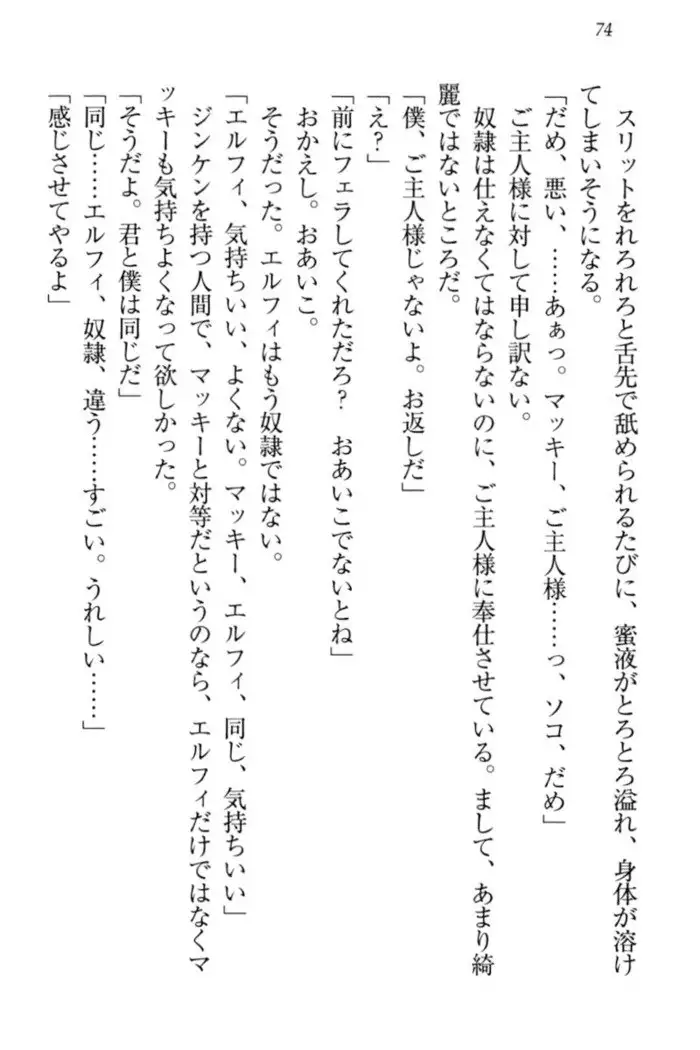 74
　スリットをれろれろと舌先で舐められるたびに、蜜液がとろとろ溢れ、身体が溶け
てしまいそうになる。
「だめ、悪い、……あぁっ。マッキー、ご主人様……っ、ソコ、だめ」
　ご主人様に対して申し訳ない。
　奴隷は仕えなくてはならないのに、ご主人様に奉仕させている。まして、あまり綺
麗ではないところだ。
「僕、ご主人様じゃないよ。お返しだ」
「え？」
「前にフェラしてくれただろ？　おあいこでないとね」
　おかえし。おあいこ。
　そうだった。エルフィはもう奴隷ではない。
「エルフィ、気持ちいい、よくない。マッキー、エルフィ、同じ、気持ちいい」
　ジンケンを持つ人間で、マッキーと対等だというのなら、エルフィだけではなくマ
ッキーも気持ちよくなって欲しかった。
「そうだよ。君と僕は同じだ」
「同じ……エルフィ、奴隷、違う……すごい。うれしい……」
「感じさせてやるよ」